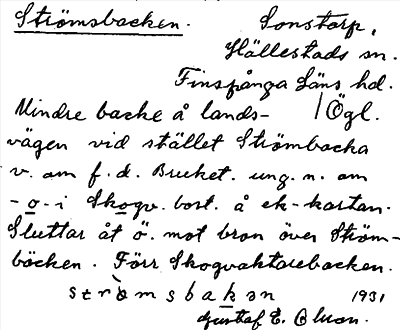 Strömsbacken. Sonstorp,
Hällestads sn.
Finspånga Läns hd.
Mindre backe å lands- Ögl.
vägen vid stället Strömbacka
v. om f. d. Bruket. ung. n. om
-o-i Skogv. bost. å ek-kartan.
Sluttar åt ö. mot bron över Ström-
böcken. Förr Skogvaktarebacken.
strömsbakən 1931
Gustaf E. Olsson.